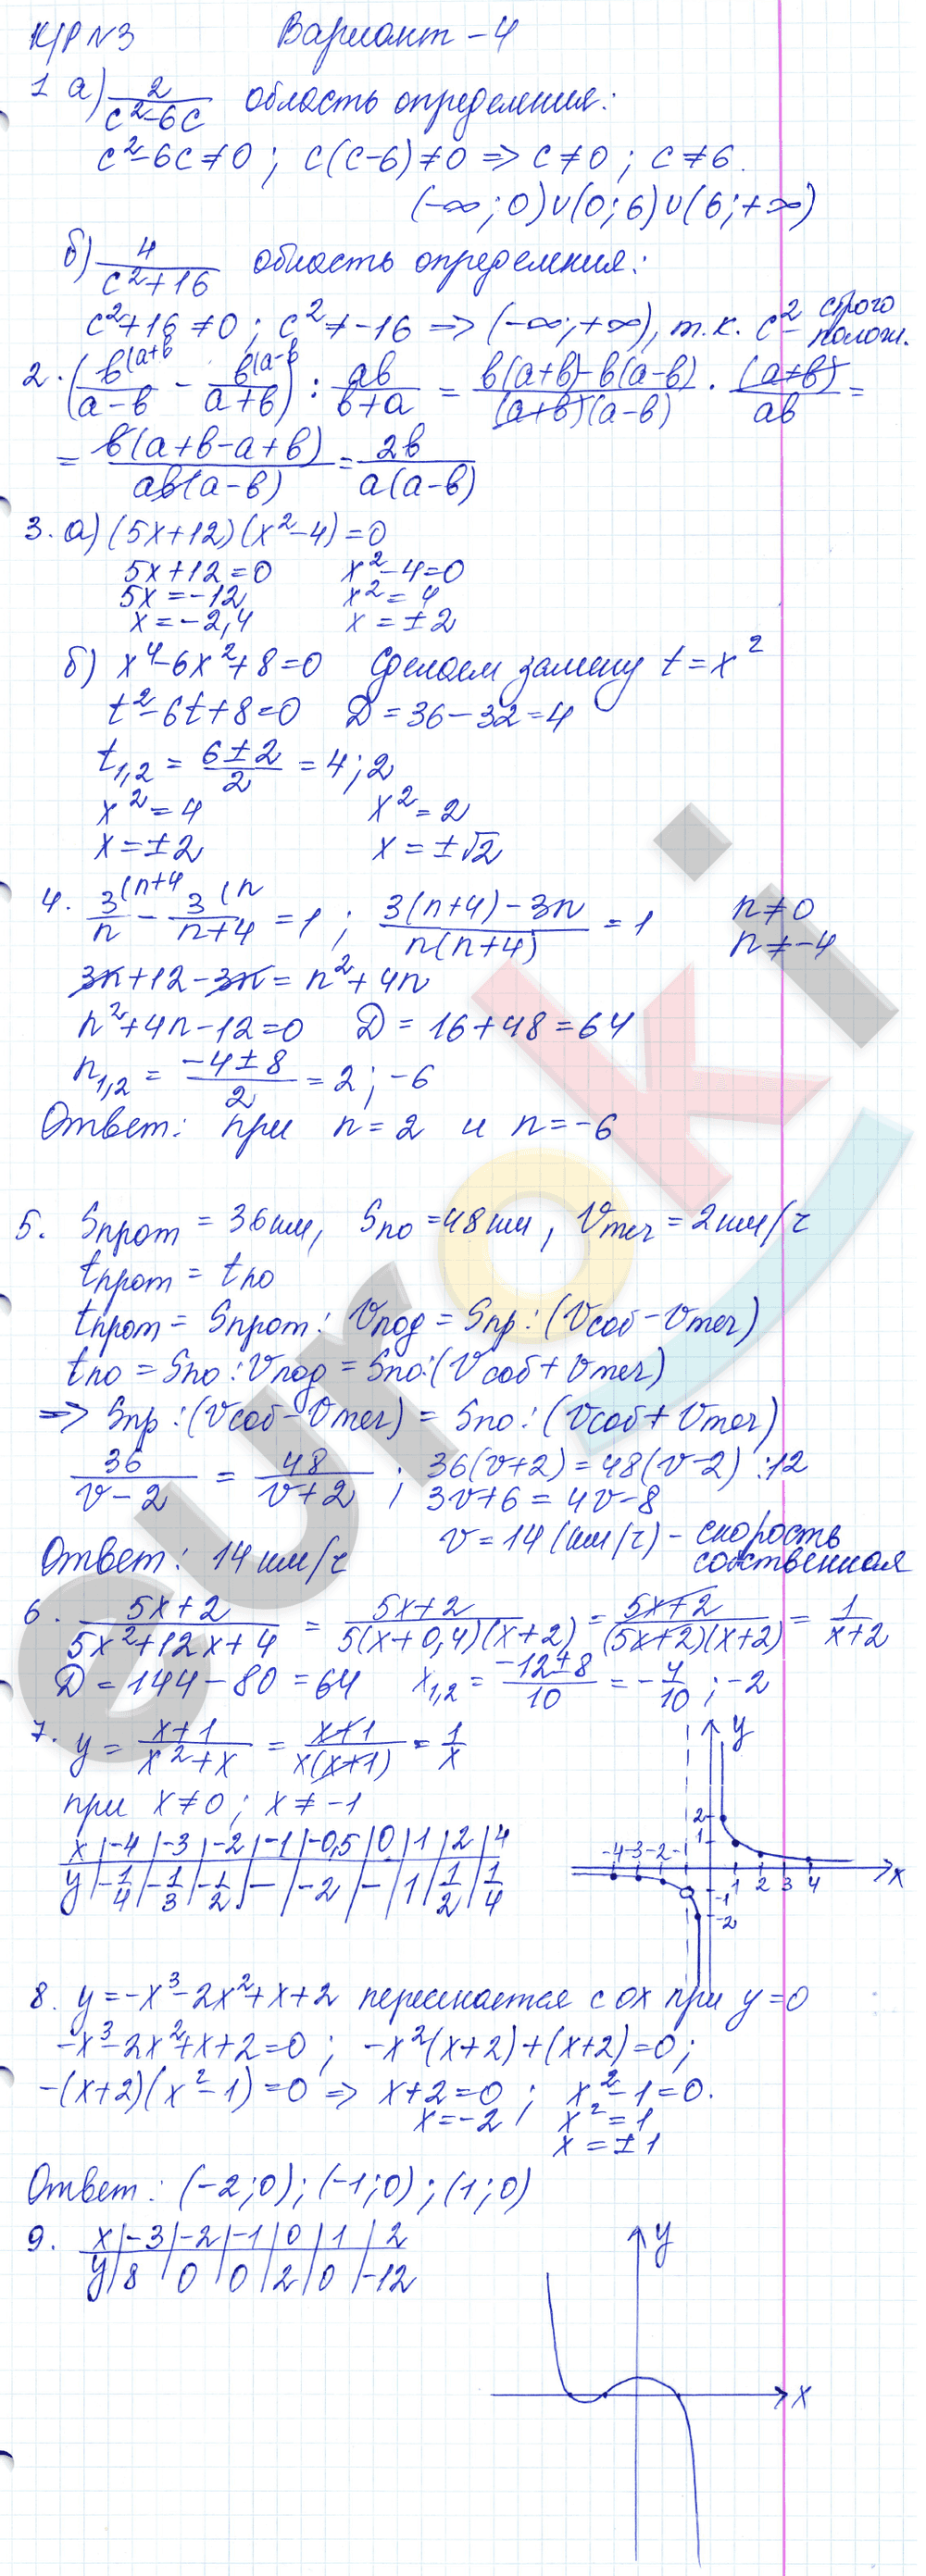 К/Р №3 Вариант-4
1 а) 2/(c²-6c) область определения:
c²-6c≠0; c(c-6)≠0 => c≠0; c≠6.
(-∞;0)∪(0;6)∪(6;+∞)
б) 4/(c²+16) область определения:
c²+16≠0; c²≠-16 => (-∞;+∞), т.к. c² - строго полож.
2. (в(a+в/(a-в) - в(a-в/(a+в)) : aв/(в+a) = (в(a+в)-в(a-в))/((a+в)(a-в)) · (a+в)/aв =
= в(a+в-a+в)/(aв(a-в)) = 2в/(a(a-в))
3. а) (5x+12)(x²-4)=0
5x+12=0 x²-4=0
5x=-12 x²=4
x=-2,4 x=±2
б) x⁴-6x²+8=0 Сделаем замену t=x²
t²-6t+8=0 D=36-32=4
t₁,₂ = (6±2)/2 = 4;2
x²=4 x²=2
x=±2 x=±√2
4. 3(n+4/n - 3(n/(n+4) = 1; (3(n+4)-3n)/(n(n+4)) = 1 n≠0
n≠-4
3n+12-3n=n²+4n
n²+4n-12=0 D=16+48=64
n₁,₂ = (-4±8)/2 = 2;-6
Ответ: при n=2 и n=-6
5. Sпрот = 36км, Sпо=48км, Vтеч=2км/ч
tпрот = tпо
tпрот = Sпрот : Vлод = Sпр : (Vсоб-Vтеч)
tпо = Sпо : Vлод = Sпо:(Vсоб+Vтеч)
=> Sпр : (Vсоб-Vтеч) = Sпо : (Vсоб+Vтеч)
36/(v-2) = 48/(v+2); 36(v+2)=48(v-2) :12
3v+6=4v-8
v=14 (км/ч) - скорость собственная
Ответ: 14км/ч
6. (5x+2)/(5x²+12x+4) = (5x+2)/(5(x+0,4)(x+2)) = (5x+2)/((5x+2)(x+2)) = 1/(x+2)
D=144-80=64 x₁,₂ = (-12±8)/10 = -4/10; -2
7. y = (x+1)/(x²+x) = (x+1)/(x(x+1)) = 1/x
при x≠0; x≠-1
x | -4 | -3 | -2 | -1 | -0,5 | 0 | 1 | 2 | 4
y | -1/4 | -1/3 | -1/2 | - | -2 | - | 1 | 1/2 | 1/4
y
2
1
-4 -3 -2 -1
1 2 3 4 x
-1
-2
8. y=-x³-2x²+x+2 пересекается с ox при y=0
-x³-2x²+x+2=0; -x²(x+2)+(x+2)=0;
-(x+2)(x²-1)=0 => x+2=0; x²-1=0.
x=-2; x²=1
x=±1
Ответ: (-2;0); (-1;0); (1;0)
9. x | -3 | -2 | -1 | 0 | 1 | 2
y | 8 | 0 | 0 | 2 | 0 | -12
y
x
euroki